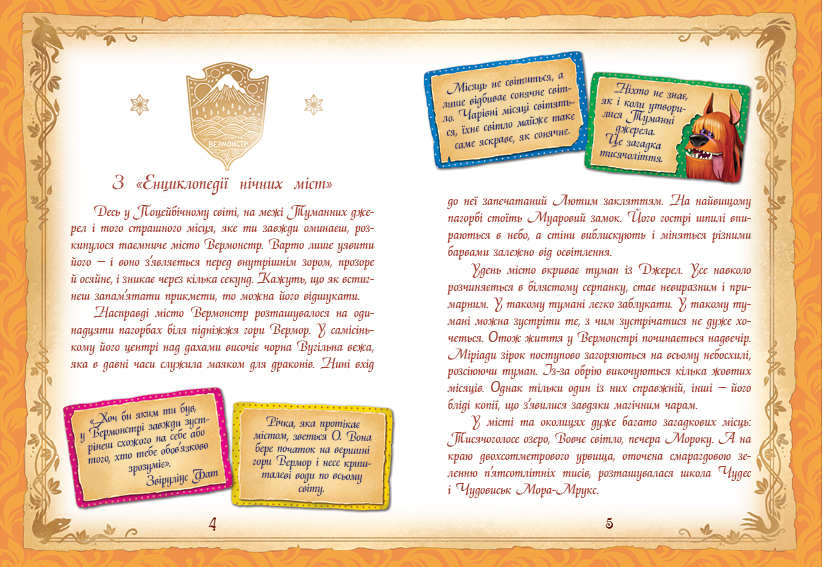 ВЕРМОНСТР
З «Енциклопедії нічних міст»
Десь у Поцейбічному світі, на межі Туманних дже-
рел і того страшного місця, яке ти завжди оминаєш, роз-
кинулося таємниче місто Вермонстр. Варто лише уявити
його – і воно з'являється перед внутрішнім зором, прозоре
й осяйне, і зникає через кілька секунд. Кажуть, що як встиг-
неш запам'ятати прикмети, то можна його відшукати.
Насправді місто Вермонстр розташувалося на оди-
надцяти пагорбах біля підніжжя гори Вермор. У самісінь-
кому його центрі над дахами височіє чорна Вугільна вежа,
яка в давні часи служила маяком для драконів. Нині вхід
«Хоч би яким ти був,
у Вермонстрі завжди зуст-
рінеш схожого на себе або
того, хто тебе обов'язково
зрозуміє».
Звіруліус Фат
Річка, яка протікає
містом, зветься О. Вона
бере початок на вершині
гори Вермор і несе криш-
талеві води по всьому
світу.
4
Місяць не світиться, а
лише відбиває сонячне світ-
ло. Чарівні місяці світять-
ся, їхнє світло майже таке
саме яскраве, як сонячне.
Ніхто не знає,
як і коли утвори-
лися Туманні
джерела.
Це загадка
тисячоліття.
до неї запечатаний Лютим закляттям. На найвищому
пагорбі стоїть Муаровий замок. Його гострі шпилі впи-
раються в небо, а стіни виблискують і міняться різними
барвами залежно від освітлення.
Удень місто вкриває туман із Джерел. Усе навколо
розчиняється в білястому серпанку, стає невиразним і при-
марним. У такому тумані легко заблукати. У такому ту-
мані можна зустріти те, з чим зустрічатися не дуже хо-
четься. Отож життя у Вермонстрі починається надвечір.
Міріади зірок поступово загоряються на всьому небосхилі,
розсіюючи туман. Із-за обрію викочуються кілька жовтих
місяців. Однак тільки один із них справжній, інші – його
бліді копії, що з'явилися завдяки магічним чарам.
У місті та околицях дуже багато загадкових місць:
Тисячоголосе озеро, Вовче світло, печера Мороку. А на
краю двохсотметрового урвища, оточена смарагдовою зе-
ленню п'ятсотлітніх тисів, розташувалася школа Чудес
і Чудовиськ Мора-Мрукс.
5